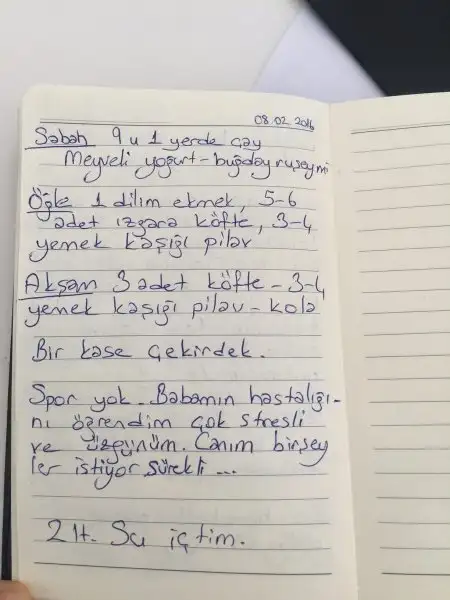 08.02.2016
Sabah 9 u 1 yerde çay
Meyveli yoğurt - buğday ruşeymi
Öğle 1 dilim ekmek, 5-6
adet ızgara köfte, 3-4
yemek kaşığı pilav
Akşam 3 adet köfte - 3-4
yemek kaşığı pilav - kola
Bir kase çekirdek.
Spor yok. Babamın hastalığı-
nı öğrendim çok stresli
ve üzgünüm. Canım birşey
ler istiyor sürekli ...
2 lt. Su içtim.